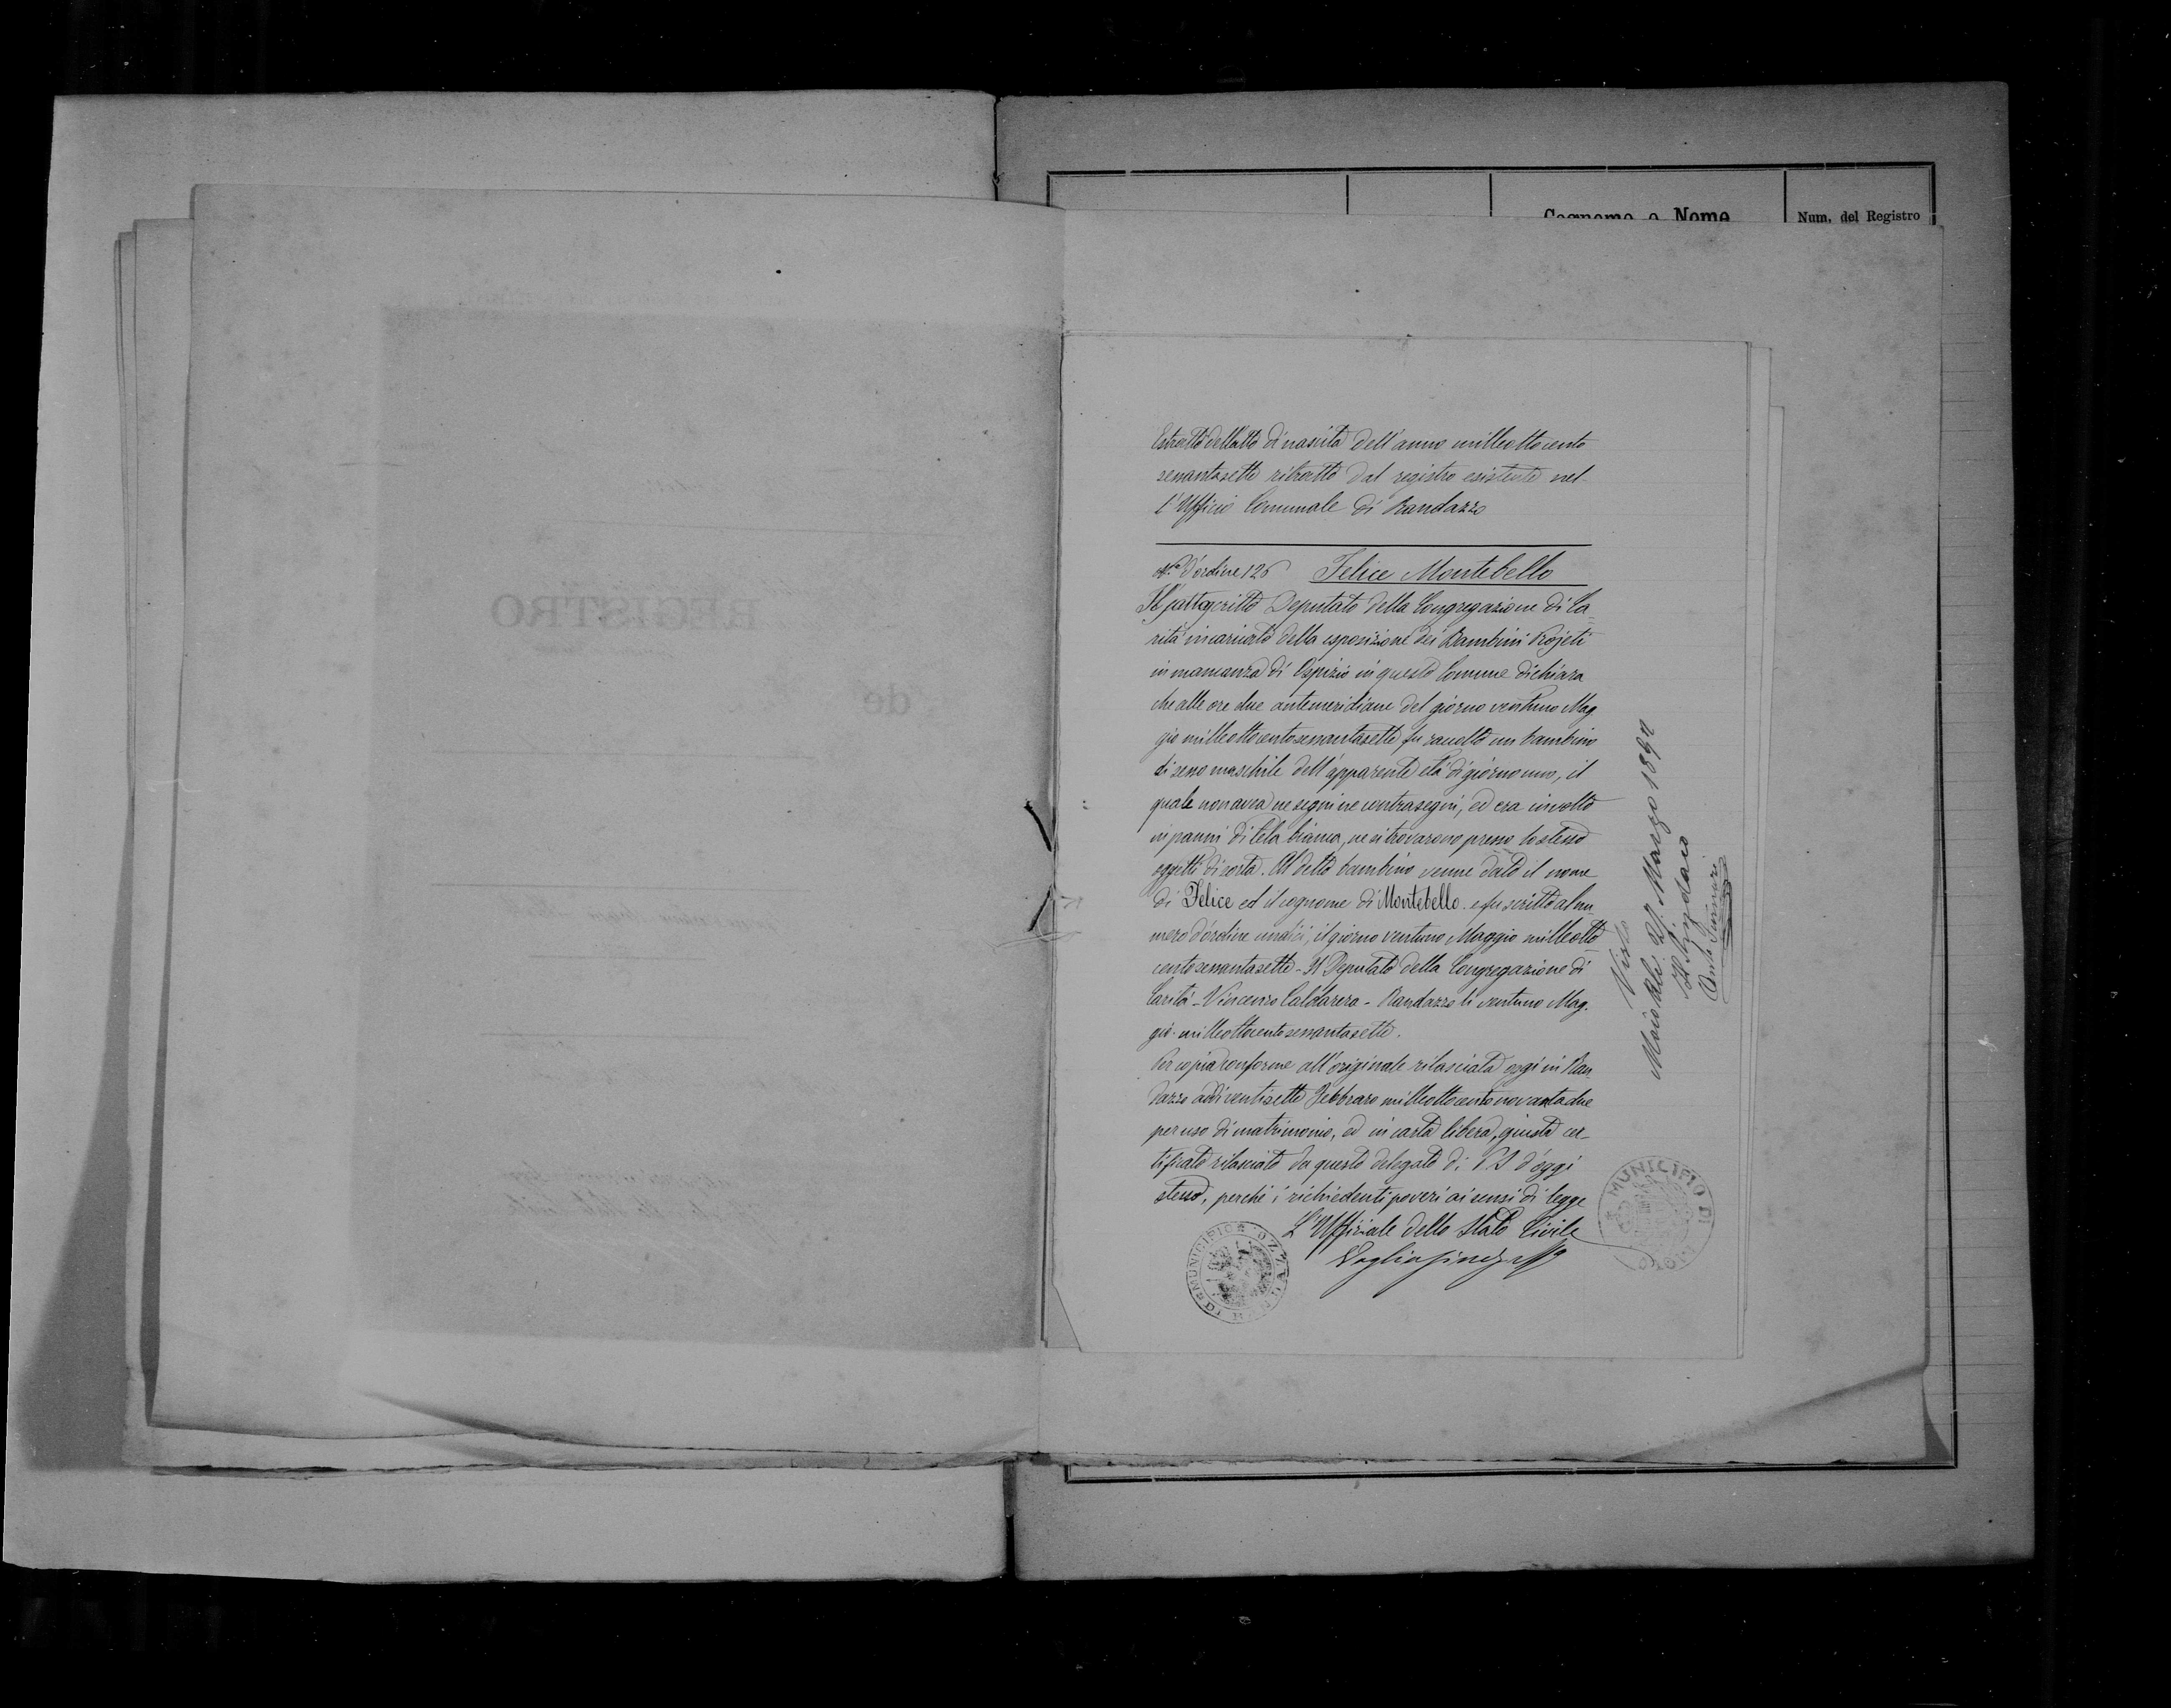 Cognome e Nome
Num. del Registro
REGISTRO
de
Estratto dell'atto di nascita dell'anno milleottocento
sessantasette ritratto dal registro esistente nel-
l'Ufficio Comunale di Randazzo
N.º d'ordine 126 Felice Montebello
Il sottoscritto Deputato della Congregazione di Ca-
rità incaricato della esposizione dei Bambini Projeti
in mancanza di Ospizio in questo Comune dichiara
che alle ore due antemeridiane del giorno ventuno Mag
gio milleottocentosessantasette fu raccolto un bambino
di sesso maschile dell'apparente età di giorno uno, il
quale non avea ne segni ne contrasegni, ed era involto
in panni di tela bianca, ne si trovarono presso lo stesso
oggetti di sorta. Al detto bambino venne dato il nome
di Felice ed il cognome di Montebello. e fu scritto al nu-
mero d'ordine undici, il giorno ventuno Maggio milleotto
centosessantasette - Il Deputato della Congregazione di
Carità - Vincenzo Caldarera - Randazzo li ventuno Mag.
gio milleottocentosessantasette.
Per copia conforme all'originale rilasciata oggi in Ran
dazzo addi ventisette Febbraro milleottocentonovantadue
per uso di matrimonio, ed in carta libera, giusta cer-
tificato rilasciato da questo delegato di P.S d'oggi
stesso, perchè i richiedenti poveri ai sensi di legge
L'Uffiziale dello Stato Civile
MUNICIPIO DI RANDAZZO
MUNICIPIO DI
Visto
Mojo Alc. 27. Marzo 1892
Il Sindaco